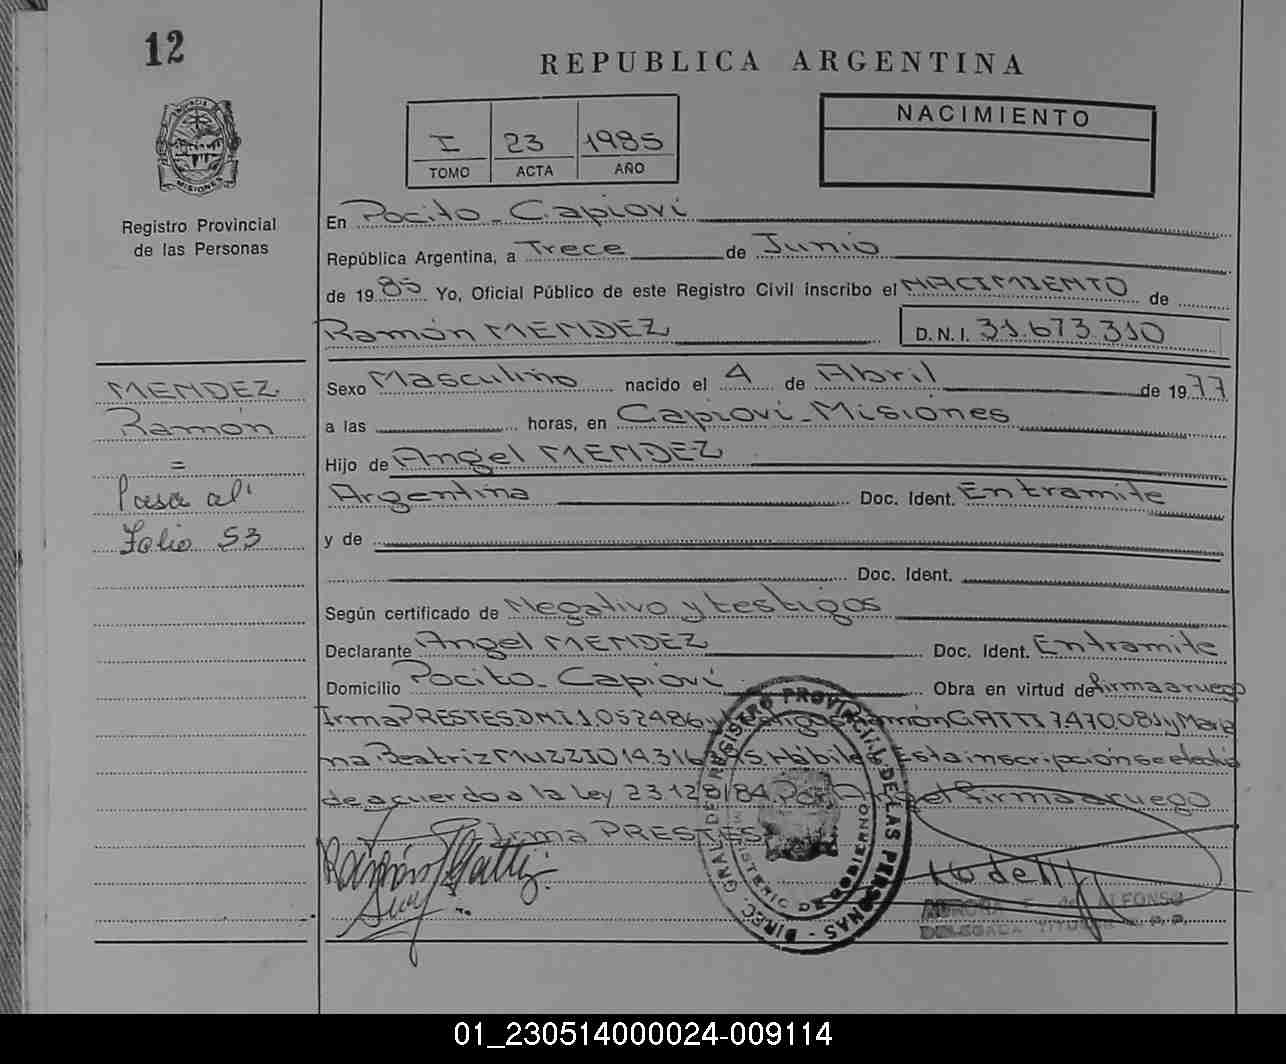 12
REPUBLICA ARGENTINA
I 23 1985
TOMO ACTA AÑO
NACIMIENTO
MISIONES
Registro Provincial
de las Personas
En Pocito - Capioví
República Argentina, a Trece de Junio
de 1985 Yo, Oficial Público de este Registro Civil inscribo el NACIMIENTO de
Ramón MENDEZ D.N.I. 31.673.310
MENDEZ
Ramón
=
Pasa al
Folio 53
Sexo Masculino nacido el 4 de Abril de 1977
a las horas, en Capioví - Misiones
Hijo de Angel MENDEZ
Argentina Doc. Ident. En tramite
y de
Doc. Ident.
Según certificado de Negativo y testigos
Declarante Angel MENDEZ Doc. Ident. En tramite
Domicilio Pocito - Capioví Obra en virtud de firma a ruego
Irma PRESTES DNI. 1.052486 y Ramón GATTI 7.470.081 y Maria
na Beatriz MUZZIO 14.316 hábiles Esta inscripción se efectúa
de acuerdo a la Ley 23.128/84 Por Angel firma a ruego
Irma PRESTES
Ramón Gatti
DIREC. GRAL. DEL REGISTRO PROVINCIAL DE LAS PERSONAS
MINISTERIO DE GOBIERNO
AURORA F. de ALFONSO
DELEGADA TITULAR R.P.P.
01_230514000024-009114